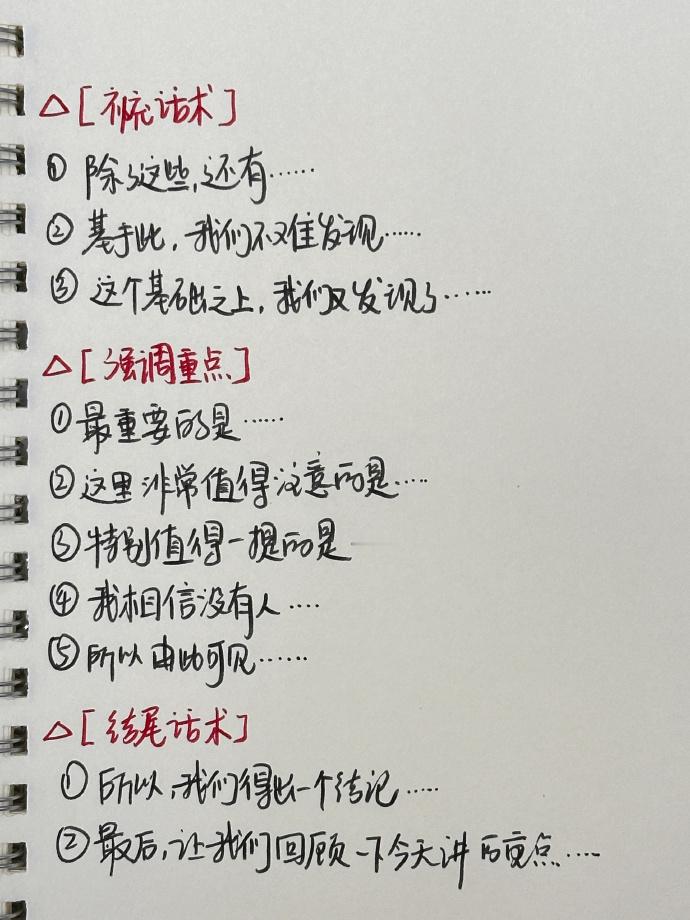 △[补充话术]
① 除了这些,还有……
② 基于此,我们不难发现……
③ 这个基础之上,我们又发现了……
△[强调重点]
①最重要的是……
②这里非常值得注意的是……
③特别值得一提的是
④我相信没有人……
⑤所以由此可见……
△[结尾话术]
①所以,我们得出一个结论……
②最后,让我们回顾一下今天讲的重点……